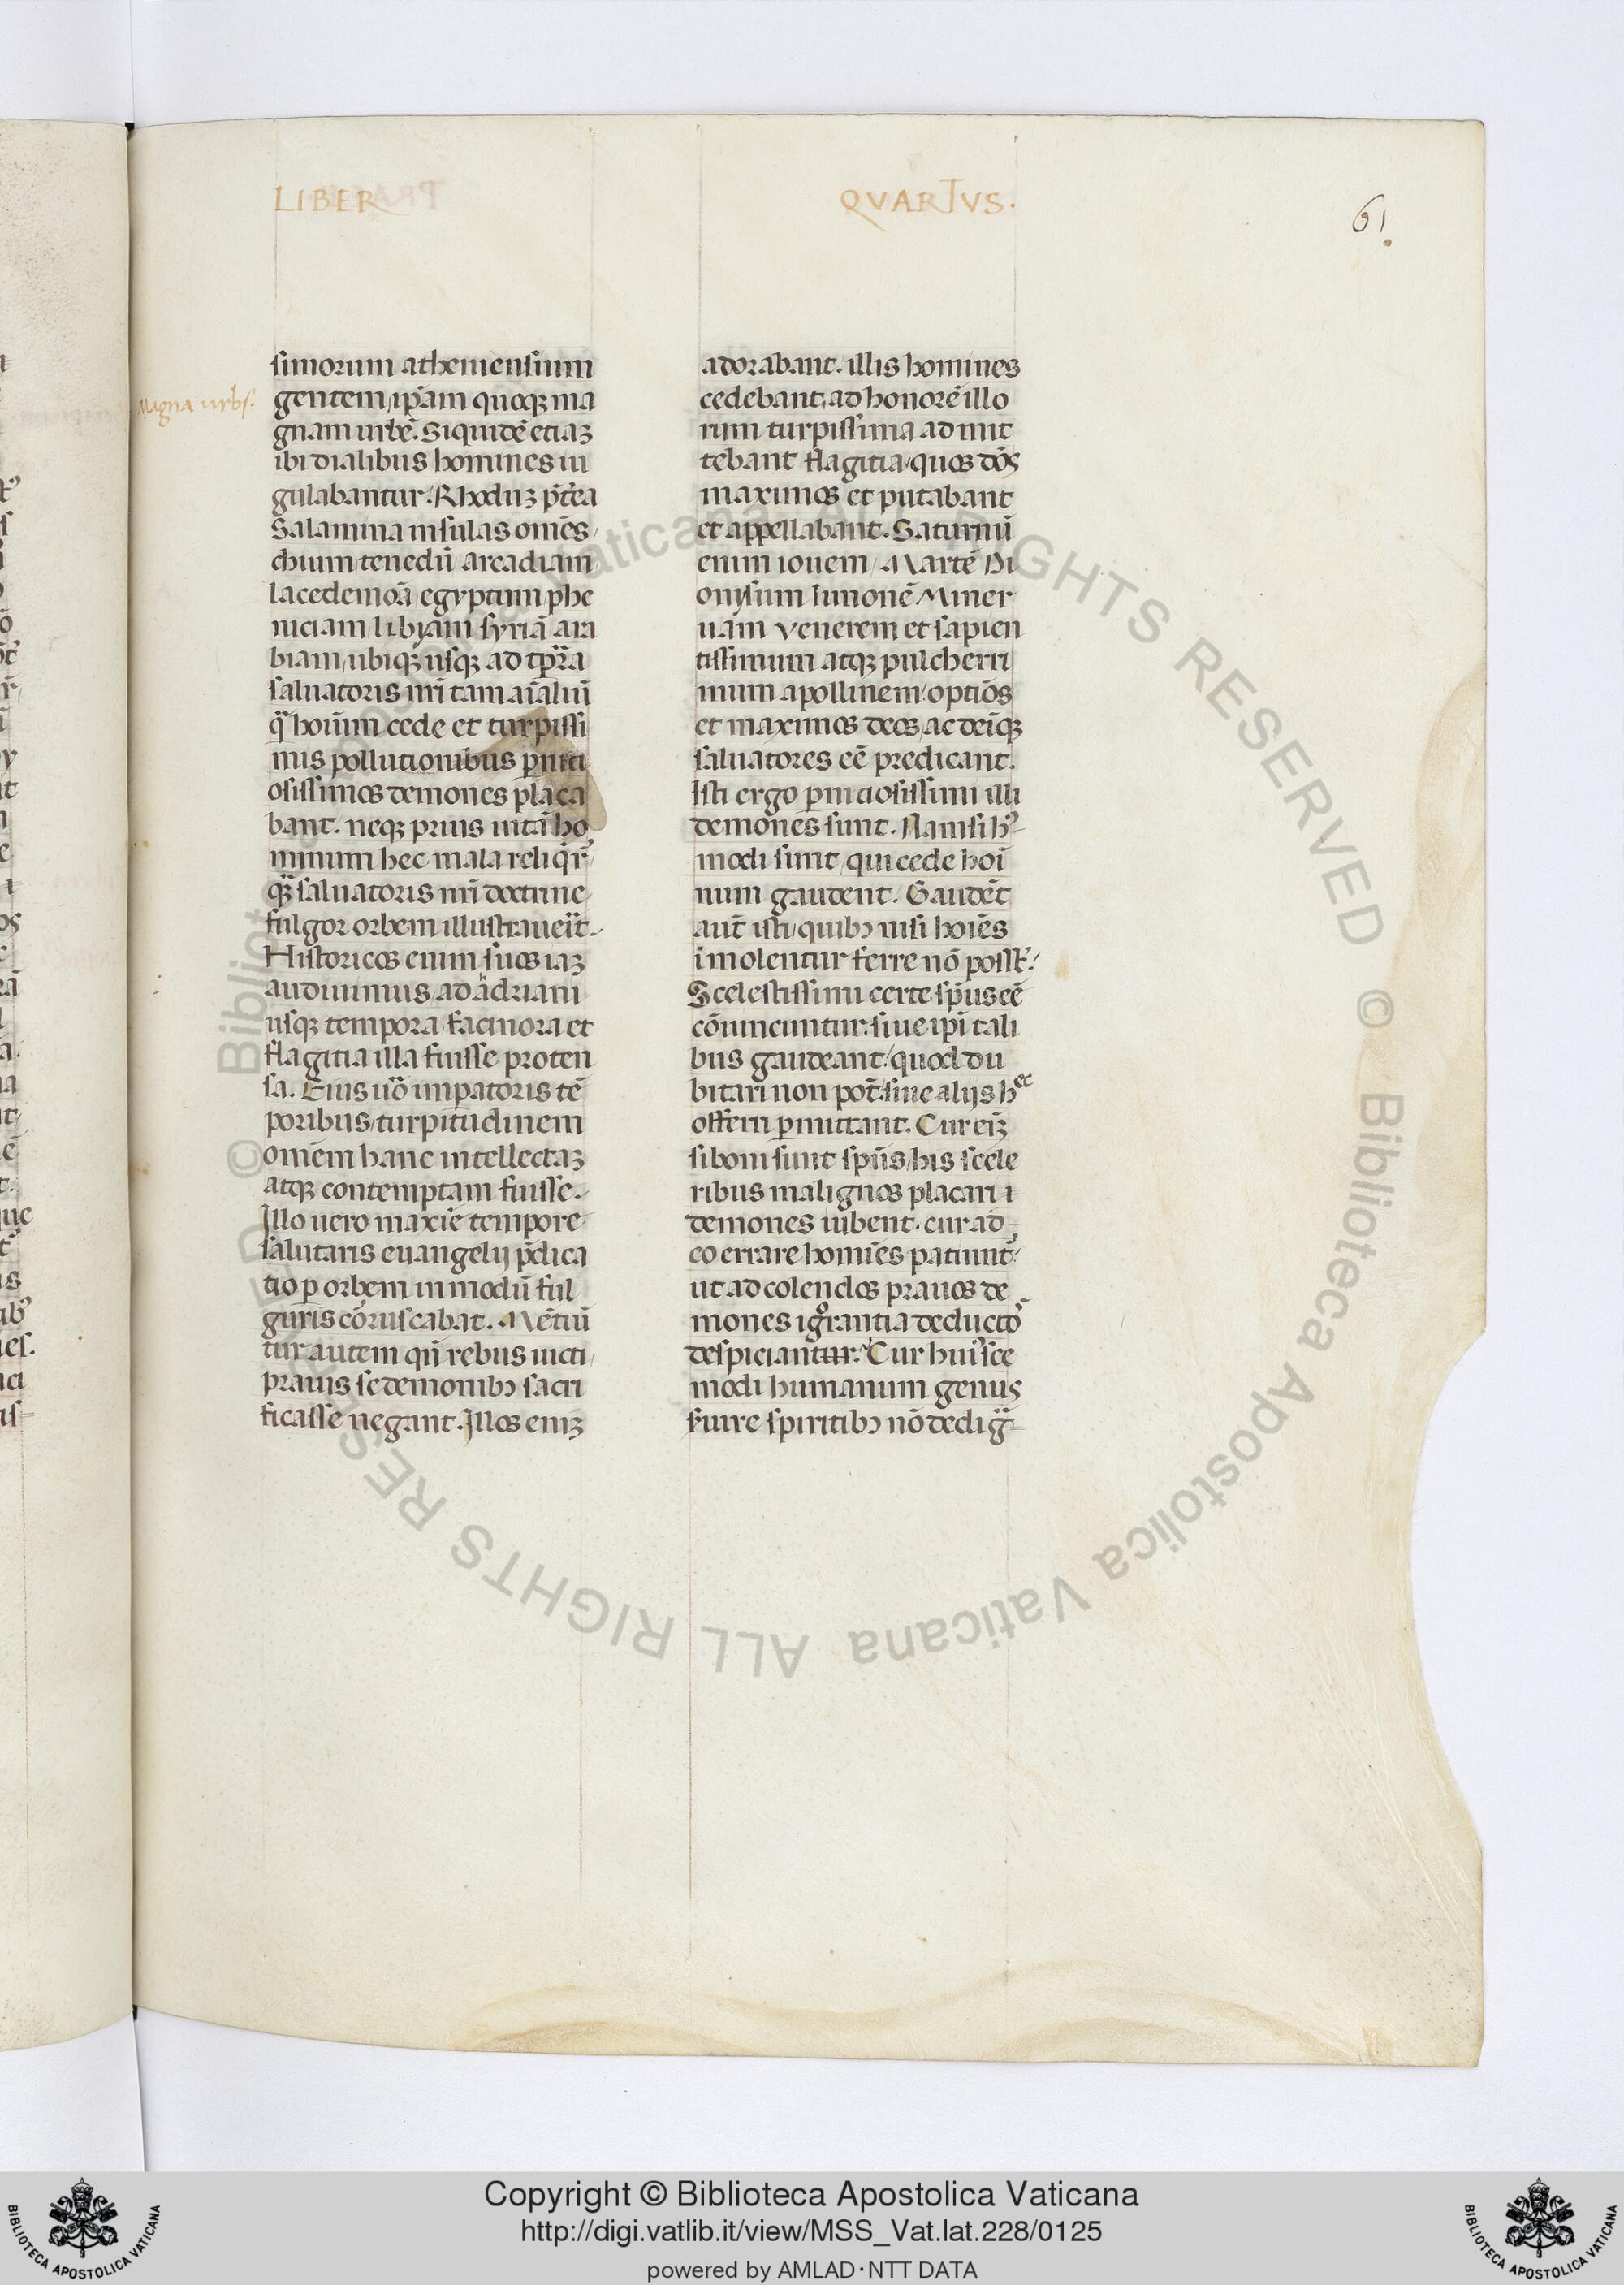 LIBER
QVARTVS.
61.
Magna urbs.
simorum atheniensium
gentem, ip̄am quoqꝫ ma
gnam urbē. Siquidē etiaꝫ
ibi dialibus homines iu
gulabantur. Rhoduꝫ p̄tea
Salamina insulas om̄es,
chium, tenedū arcadiam
lacedemoā, egyptum, phe
niciam, libyam syriā ara
biam, ubiqꝫ usqꝫ ad tp̄ra
saluatoris nr̄i tam aīaliū
q̄ hoīum cede et turpissi
mis pollutionibus ꝑniti
osissimos demones placa
bant. neqꝫ prius uitā ho
minum hec mala reliq̄r̄
qꝫ̄ saluatoris nr̄i doctrine
fulgor orbem illustraueīt.
Historicos enim suos iaꝫ
audiuimus, ad adriani
usqꝫ tempora, facinora et
flagitia illa fuisse proten
sa. Eius uō imꝑatoris tē
poribus, turpitudinem
omēm hanc intellectaꝫ
atqꝫ contemptam fuisse.
Illo uero maxīe tempore
salutaris euangelij p̄dica
tio ꝑ orbem in modū ful
guris coruscabat. Mētiū
tur autem qn̄ rebus uicti,
prauis se demonibꝰ sacri
ficasse negant. Illos eniꝫ
adorabant. illis homines
cedebant, ad honorē illo
rum turpissima admit
tebant flagitia, quos dōs
maximos et putabant
et appellabant. Saturnū
enim iouem, Martē Di
onysum Iunonē Miner
uam Venerem et sapien
tissimum atqꝫ pulcherri
mum apollinem, optīos
et maximos deos, ac deīqꝫ
saluatores eē predicant.
Isti ergo ꝑniciosissimi illi
demones sunt. Nam si hꝰ
modi sunt, qui cede hoī
num gaudent. Gaudēt
aut̄ isti, quibꝰ nisi hoīes
imolentur ferre nō posst̄.
Scelestissimi certe sp̄us eē
cōuincuntur. siue ip̄i tali
bus gaudeant, quod du
bitari non pot̄. siue alijs hec
offerri ꝑmittant. Cur eīꝫ
si boni sunt sp̄us, his scele
ribus malignos placari i
demones iubent. cur ad
eo errare homīes patiunt̄
ut ad colendos prauos de
mones ignorantia deducto
despiciantur. Cur huiꝰsce
modi humanum genus
suire spiritibꝰ nō dediḡ
Copyright © Biblioteca Apostolica Vaticana
http://digi.vatlib.it/view/MSS_Vat.lat.228/0125
powered by AMLAD·NTT DATA
BIBLIOTECA APOSTOLICA VATICANA
BIBLIOTECA APOSTOLICA VATICANA
© Biblioteca Apostolica Vaticana ALL RIGHTS RESERVED © Biblioteca Apostolica Vaticana ALL RIGHTS RESERVED